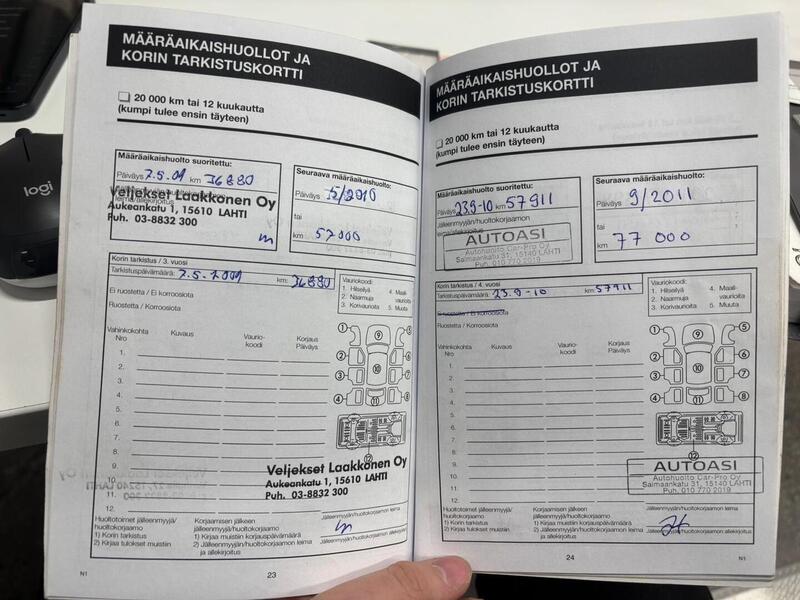 logi
MÄÄRÄAIKAISHUOLLOT JA
KORIN TARKISTUSKORTTI
20 000 km tai 12 kuukautta
(kumpi tulee ensin täyteen)
Määräaikaishuolto suoritettu:
Päiväys 7.5.09 km 36880
Veljekset Laakkonen Oy
Aukeankatu 1, 15610 LAHTI
Puh. 03-8832 300
Seuraava määräaikaishuolto:
Päiväys 5/2010
tai
km 57000
Korin tarkistus / 3. vuosi
Tarkistuspäivämäärä: 7.5.2009 km: 36880
Ei ruostetta / Ei korroosiota
Ruostetta / Korroosiota
Vauriokoodi:
1. Hilseilyä 4. Maali-
2. Naarmuja vaurioita
3. Korivaurioita 5. Muuta
Vahinkokohta Kuvaus Vaurio- Korjaus
Nro koodi Päiväys
1.
2.
3.
4.
5.
6.
7.
8.
9.
10.
11.
12.
1 5
2 6
3 7
4 8
9
10
11
12
Veljekset Laakkonen Oy
Aukeankatu 1, 15610 LAHTI
Puh. 03-8832 300
Huoltotoimet jälleenmyyjä/
huoltokorjaamo
1) Korin tarkistus
2) Kirjaa tulokset muistiin
Korjaamisen jälkeen
jälleenmyyjä/huoltokorjaamo
1) Kirjaa muistiin korjauspäivämäärä
2) Jälleenmyyjän/huoltokorjaamon leima
ja allekirjoitus
Jälleenmyyjän/huoltokorjaamon leima
Jälleenmyyjän/huoltokorjaamon allekirjoitus
N1
23
MÄÄRÄAIKAISHUOLLOT JA
KORIN TARKISTUSKORTTI
20 000 km tai 12 kuukautta
(kumpi tulee ensin täyteen)
Määräaikaishuolto suoritettu:
Päiväys 23.9-10 km 57911
Jälleenmyyjän/huoltokorjaamon
leima/allekirjoitus
AUTOASI
Autohuolto Car-Pro Oy
Salmaankatu 31, 15140 LAHTI
Puh. 010 770 2019
Seuraava määräaikaishuolto:
Päiväys 9/2011
tai
km 77 000
Korin tarkistus / 4. vuosi
Tarkistuspäivämäärä: 23.9-10 km: 57911
Ei ruostetta / Ei korroosiota
Ruostetta / Korroosiota
Vauriokoodi:
1. Hilseilyä 4. Maali-
2. Naarmuja vaurioita
3. Korivaurioita 5. Muuta
Vahinkokohta Kuvaus Vaurio- Korjaus
Nro koodi Päiväys
1.
2.
3.
4.
5.
6.
7.
8.
9.
10.
11.
12.
1 5
2 6
3 7
4 8
9
10
11
12
AUTOASI
Autohuolto Car-Pro Oy
Salmaankatu 31, 15140 LAHTI
Puh. 010 770 2019
Huoltotoimet jälleenmyyjä/
huoltokorjaamo
1) Korin tarkistus
2) Kirjaa tulokset muistiin
Korjaamisen jälkeen
jälleenmyyjä/huoltokorjaamo
1) Kirjaa muistiin korjauspäivämäärä
2) Jälleenmyyjän/huoltokorjaamon leima
ja allekirjoitus
Jälleenmyyjän/huoltokorjaamon leima
Jälleenmyyjän/huoltokorjaamon allekirjoitus
24
N1